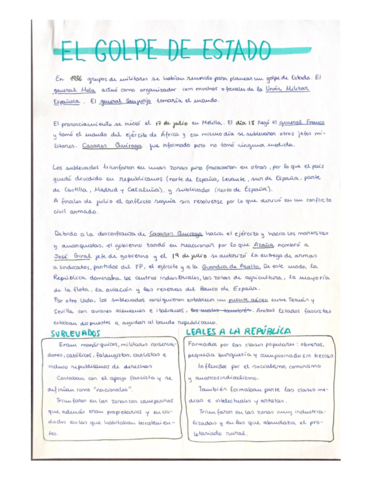 EL GOLPE DE ESTADO
En 1936 grupos de militares se habían reunido para planear un golpe de Estado. El
general Mola actuó como organizador con muchos oficiales de la Unión Militar
Española. El general Sanjurjo tomaría el mando.
El pronunciamiento se inició el 17 de julio en Melilla. El día 18 llegó el general Franco
y tomó el mando del ejército de África y ese mismo día se sublevaron otros jefes mili-
tares. Casares Quiroga fue informado pero no tomó ninguna medida.
Los sublevados triunfaron en unas zonas pero fracasaron en otras, por lo que el país
quedó dividido en republicanos (norte de España, Levante, sur de España, parte
de Castilla, Madrid y Cataluña), y sublevados (norte de España).
A finales de julio el conflicto seguía sin resolverse por lo que derivó en un conflicto
civil armado.
Debido a la desconfianza de Casares Quiroga hacia el ejército y hacia los marxistas
y anarquistas, el gobierno tardó en reaccionar por lo que Azaña nombró a
José Giral jefe de gobierno y el 19 de julio se autorizó la entrega de armas
a sindicatos, partidos del FP, al ejército y a la Guardia de Asalto. De este modo, la
República dominaba los centros industriales, las zonas de agricultura, la mayoría
de la flota, la aviación y las reservas del Banco de España.
Por otro lado, los sublevados consiguieron establecer un puente aéreo entre Tetuán y
Sevilla con aviones alemanes e italianos, Ambos Estados fascistas
estaban dispuestos a ayudar al bando republicano.
SUBLEVADOS
Eran monárquicos, militares conserva-
dores, católicos, falangistas, carlistas e
incluso republicanos de derechas
Contaban con el apoyo fascista y se
definían como "nacionales".
Triunfaron en las zonas con campesinos
que además eran propietarios y en ciu-
dades en las que habitaban
LEALES A LA REPÚBLICA
Formada por las clases populares: obreros,
pequeña burguesía y campesinado sin tierras
influidas por el socialismo, comunismo
y anarcosindicalismo.
También formaban parte las clases me-
dias e intelectuales y artistas.
Triunfaron en las zonas muy industria-
lizadas y en las que abundaba el pro-
letariado rural.